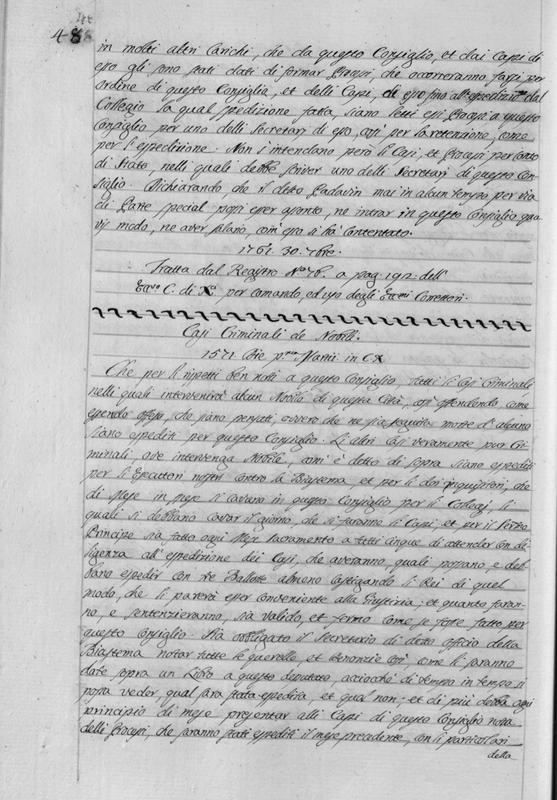 48
in molti altri Carichi, che da questo Consiglio, et dai Capi di
esso gli sono stati dati di formar Processi, che occorreranno farsi per
ordine di questo Consiglio, et delli Capi, di esso fino all'espedizion dal
Collegio la qual spedizione fatta, siano letti essi Processi a questo
Consiglio per uno delli Secretarj di esso, così per la retenzione, come
per l'espedizione. Non s'intendano però li Casi, et Processi per conto
di Stato, nelli quali debba scriver uno delli Secretarj di questo Con-
siglio. Dichiarando che il detto Padavin mai in alcun tempo per via
di Parte special possi esser assonto, ne intrar in questo Consiglio qua
vis modo, ne aver salario, com'esso si hà contentato.
1761. 30. 7bre.
Tratta dal Registro No. 76. a pag. 192. dell'
Ecc.so C. di X.ci per comando, ed uso degli Ecc.mi Correttori.
Casi Criminali de Nobili.
1571. Die p.mo Martii in CX
Che per li rispetti ben noti a questo Consiglio, tutti li Casi Criminali
nelli quali intervenirà alcun Nobile di questa Città, così offendendo, come
essendo offeso, che siano pensati, ovvero che ne sia seguita morte d'alcuno
siano espediti per questo Consiglio. Li altri Casi veramente pur Cri-
minali ove intervenga Nobile, com'è detto di sopra siano espediti
per li Esecutori nostri contro la Biastema, et per li doi Inquisitori, che
di Mese in mese si cavano in questo Consiglio per li Collegj, li
quali si debbano cavar il giorno, che si faranno li Capi, et per il Seren.mo
Principe sia dato ogni Mese Sacramento a tutti cinque di attender con di-
ligenza all'espedizione dei Casi, che averanno, quali possano, e deb-
bano espedir con tre Ballotte almeno castigando li Rei di quel
modo, che li parerà esser conveniente alla Giustizia; et quanto faran-
no, e sentenzieranno, sia valido, et fermo come se fosse fatto per
questo Consiglio. Sia obbligato il Secretario di detto officio della
Biastema notar tutte le querelle, et denoncie così, come li saranno
date sopra un Libro a questo deputato, acciochè di tempo in tempo si
possa veder, qual sarà stata espedita, et qual non; et di più debba ogni
principio di mese presentar alli Capi di questo Consiglio nota
delli Processi, che saranno stati espediti il mese precedente, con li particolari
della